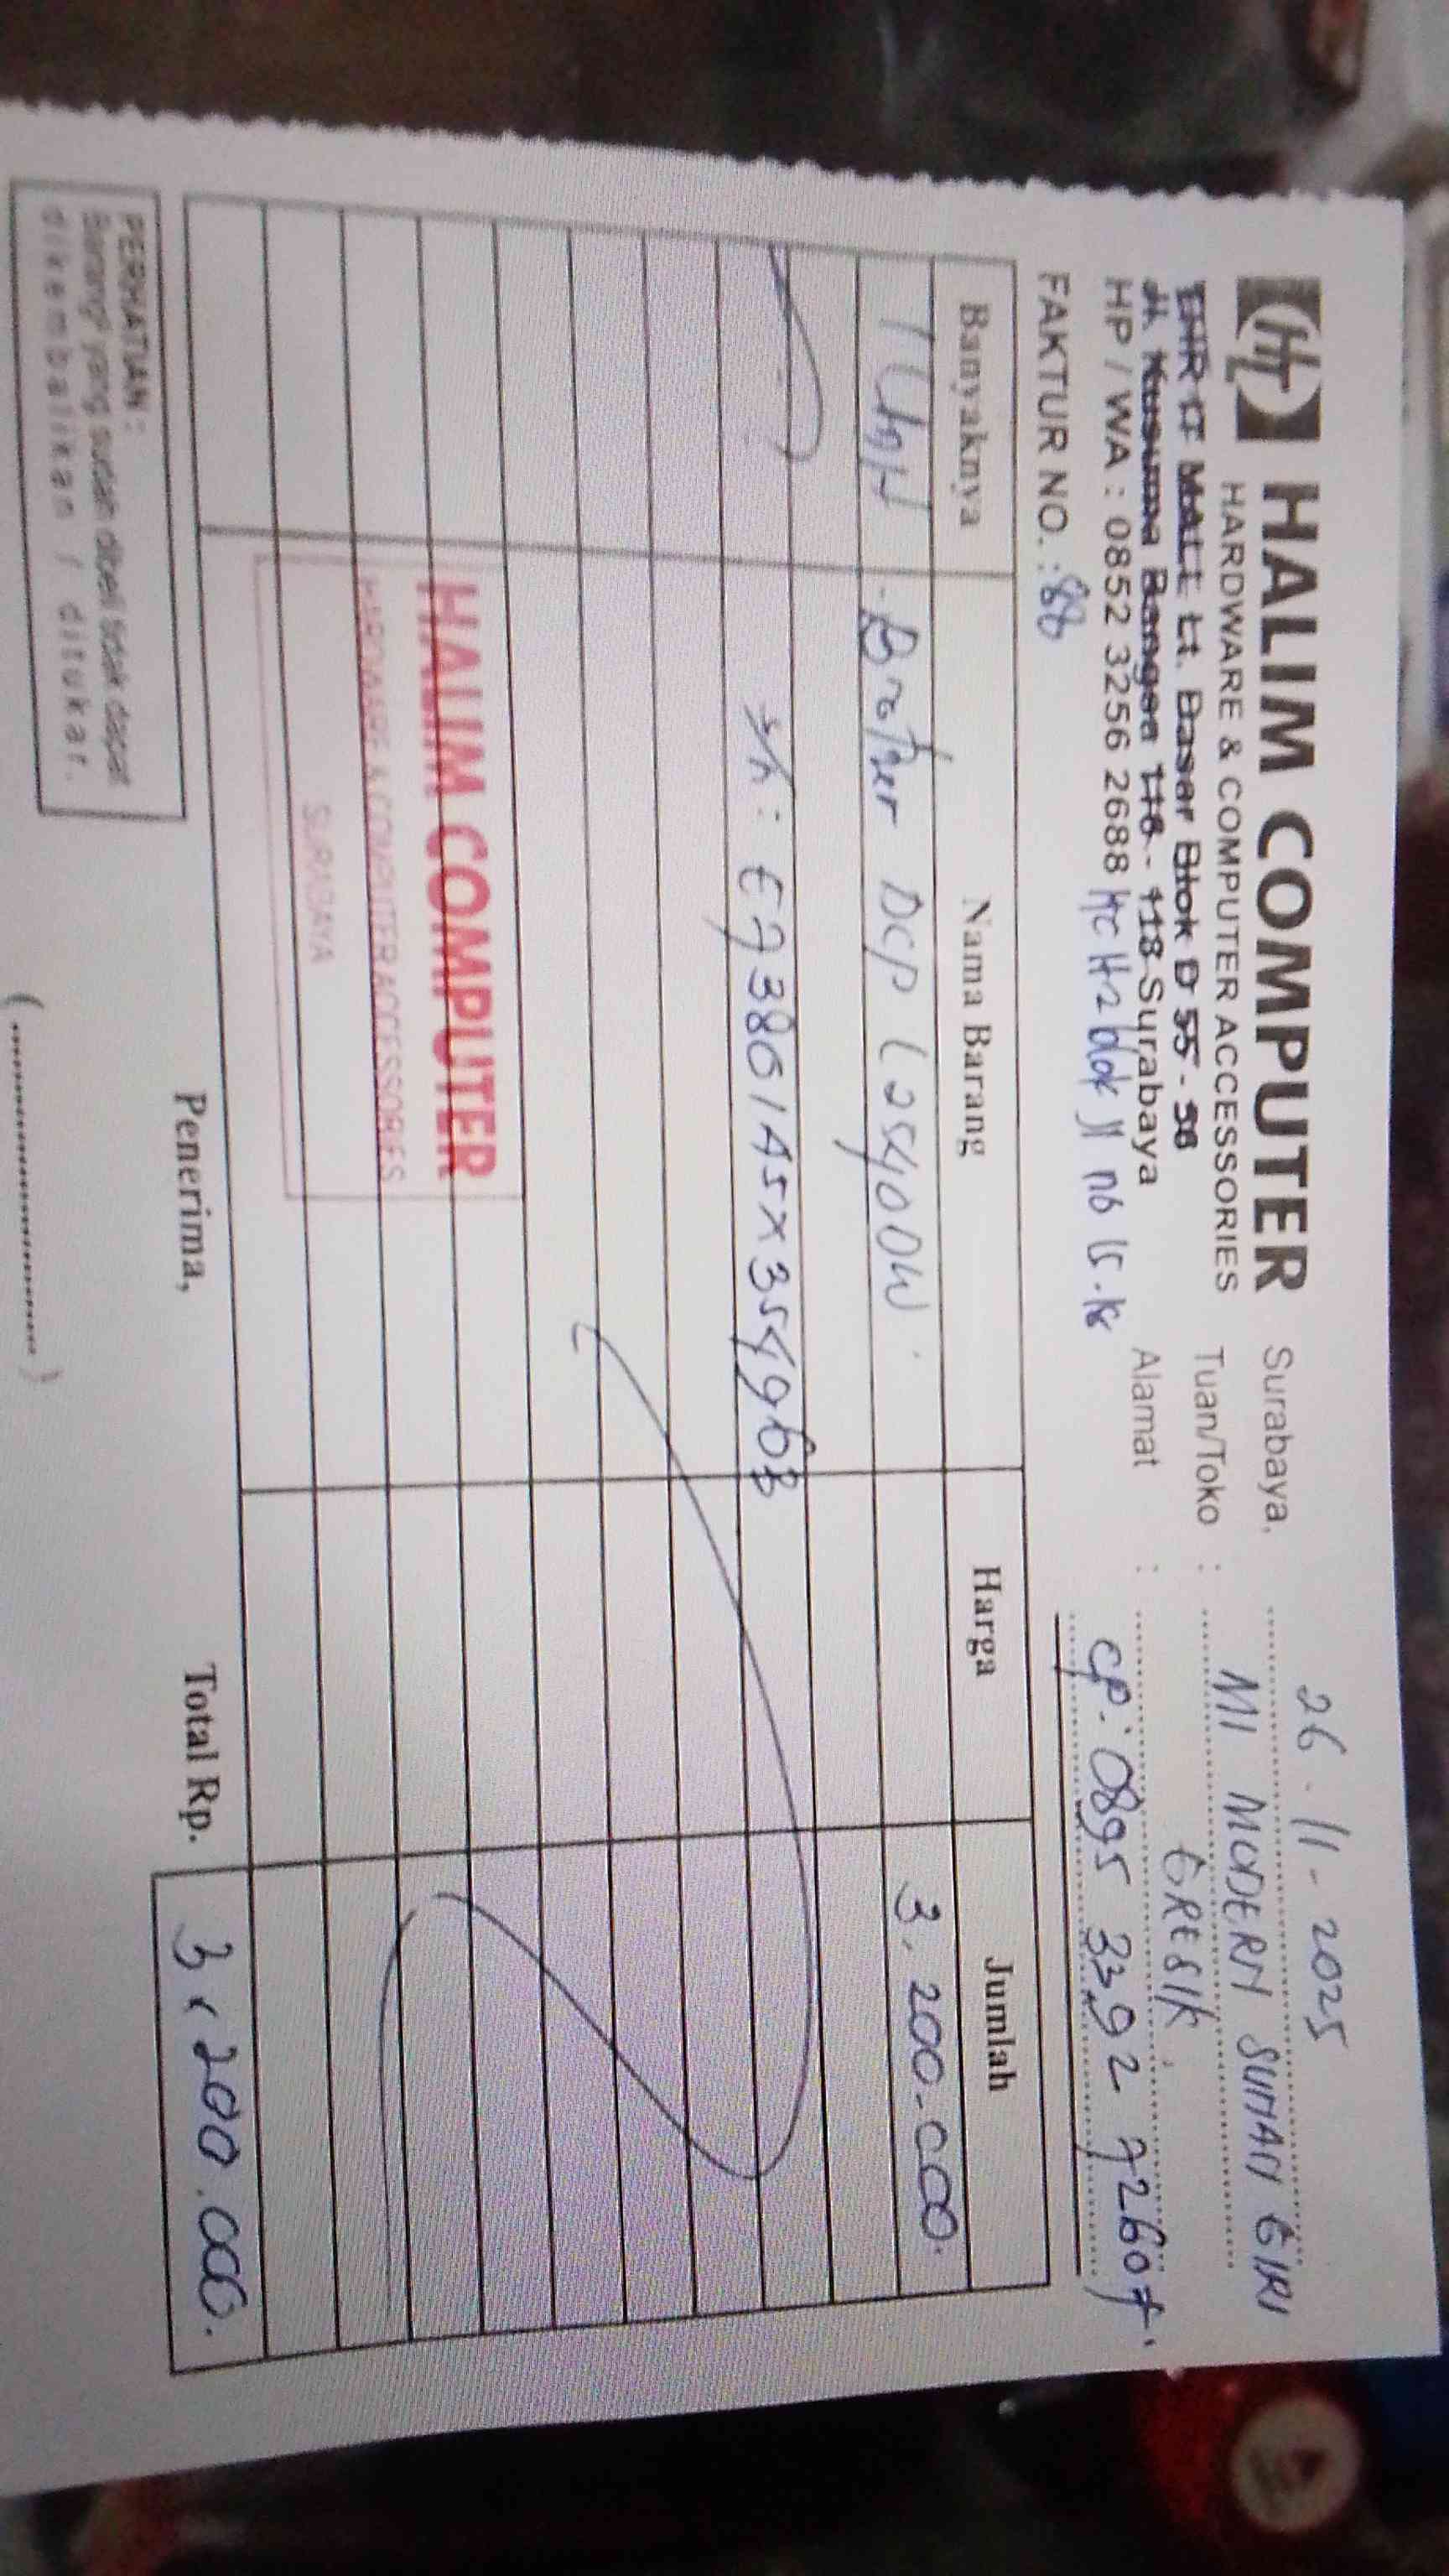 HALIM COMPUTER
HARDWARE & COMPUTER ACCESSORIES
THR IT MALL Lt. Dasar Blok D 55 - 56
Jl. Kusuma Bangsa 116 - 118 Surabaya
HP / WA : 0852 3256 2688
FAKTUR NO. : 88
Surabaya, 26 - 11 - 2025
Tuan/Toko : MI MODERN SUNAN GIRI
GRESIK
Alamat :
CP : 0895 3392 7260 7
Banyaknya Nama Barang Harga Jumlah
1 Unit Brother DCP L2540DW 3.200.000
s/n : E73801A5X354968
HALIM COMPUTER
HARDWARE & COMPUTER ACCESSORIES
SURABAYA
Total Rp. 3.200.000
PERHATIAN :
Barang² yang sudah dibeli tidak dapat
dikembalikan / ditukar.
Penerima,
(....................)